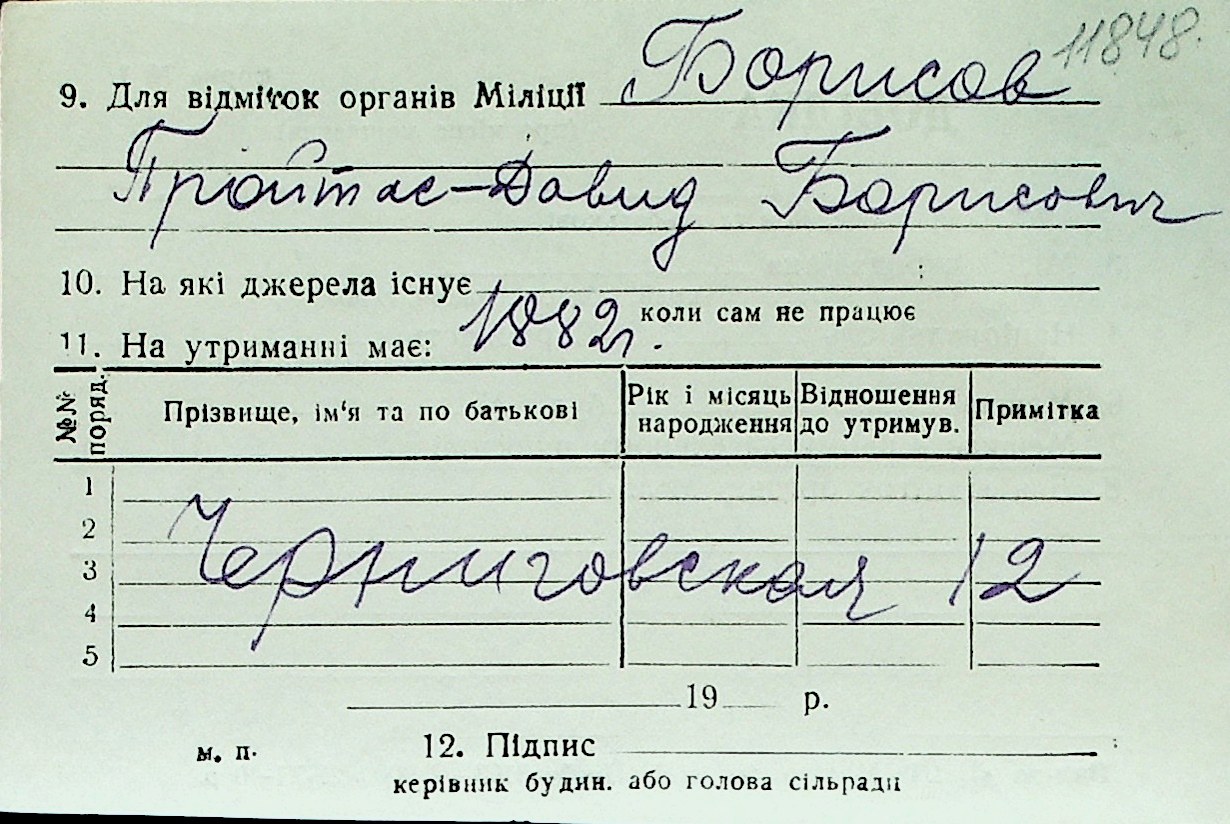 11848.
9. Для відміток органів Міліції Борисов
Пройтас-Давид Борисович
10. На які джерела існує
коли сам не працює
11. На утриманні має: 1882 г.
№№ поряд. Прізвище, ім‘я та по батькові Рік і місяць народження Відношення до утримув. Примітка
1
2
3 Черниговская 12
4
5
19 р.
м. п. 12. Підпис
керівник будин. або голова сільради